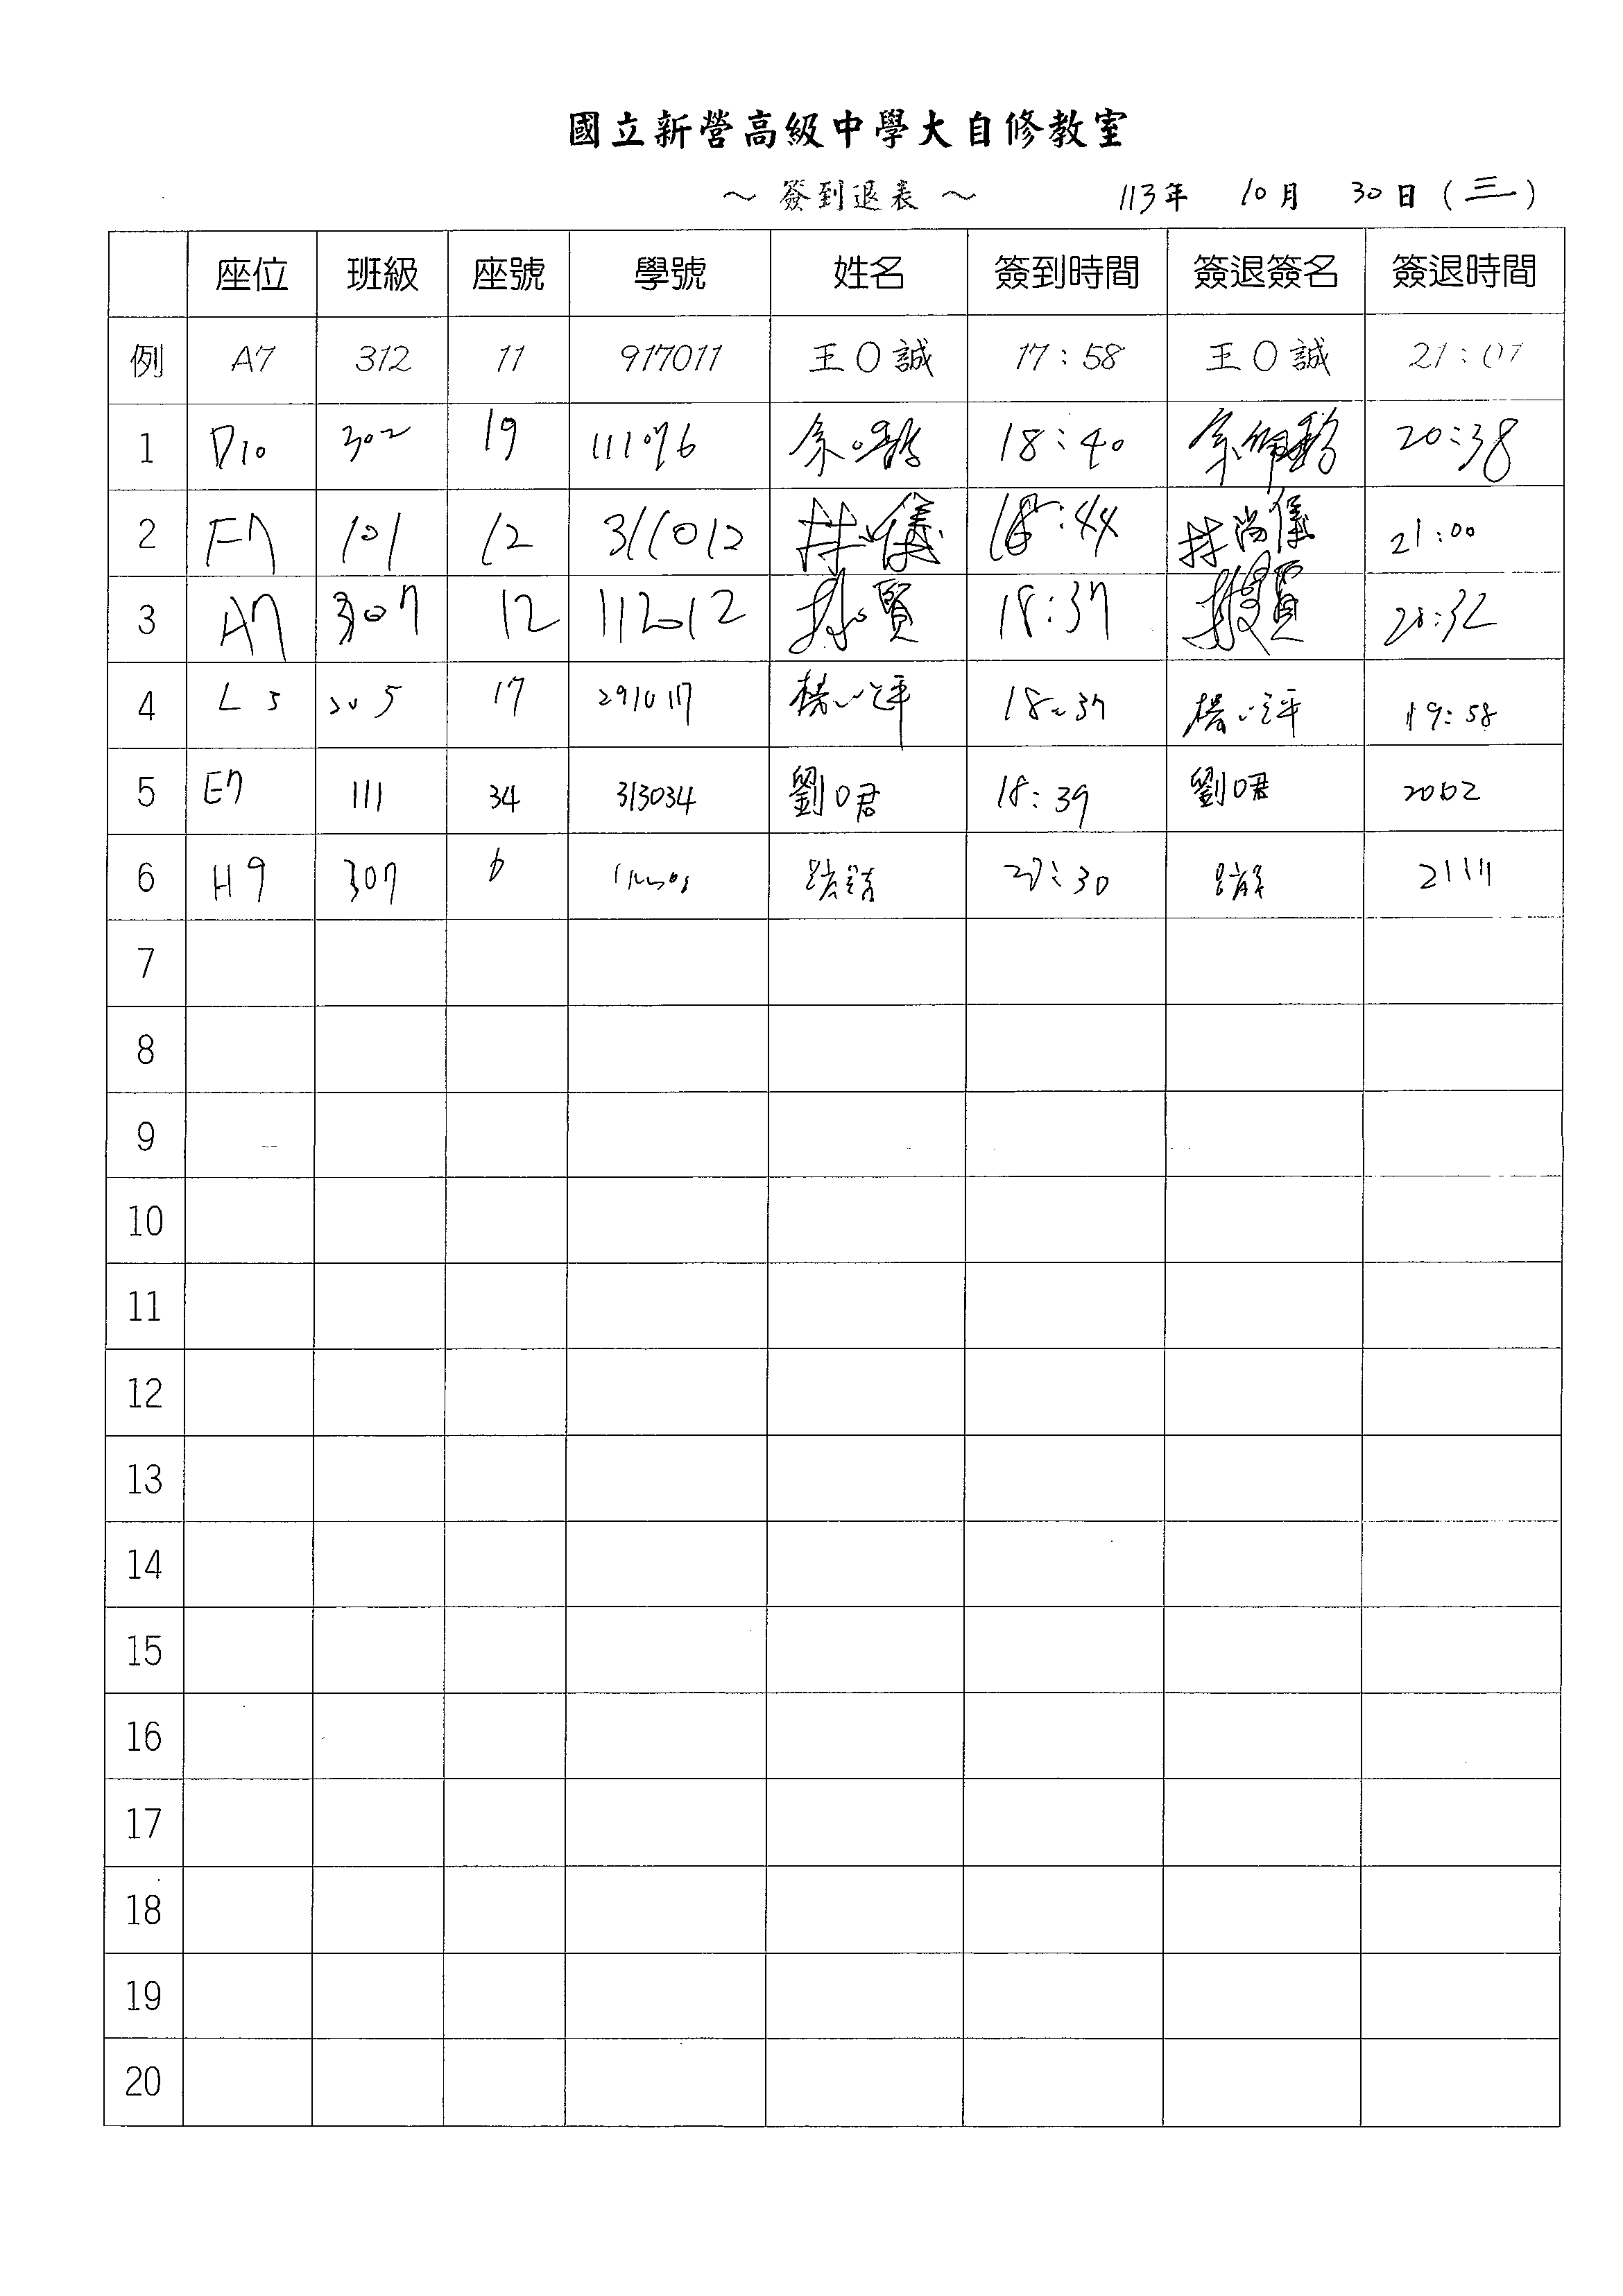 國立新營高級中學大自修教室
～ 簽到退表 ～ 113年 10月 30日(三)
座位 班級 座號 學號 姓名 簽到時間 簽退簽名 簽退時間
例 A7 312 11 917011 王〇誠 17:58 王〇誠 21:01
1 D10 302 19 18:40 20:38
2 F7 101 12 311012 林 儀 18:44 林尚儀 21:00
3 A7 307 12 112012 賢 18:37 賢 20:32
4 L5 305 17 291017 楊 評 18:37 楊 評 19:58
5 E7 111 34 313034 劉〇君 18:39 劉〇君 2002
6 H9 307 :30 21:11
7
8
9
10
11
12
13
14
15
16
17
18
19
20